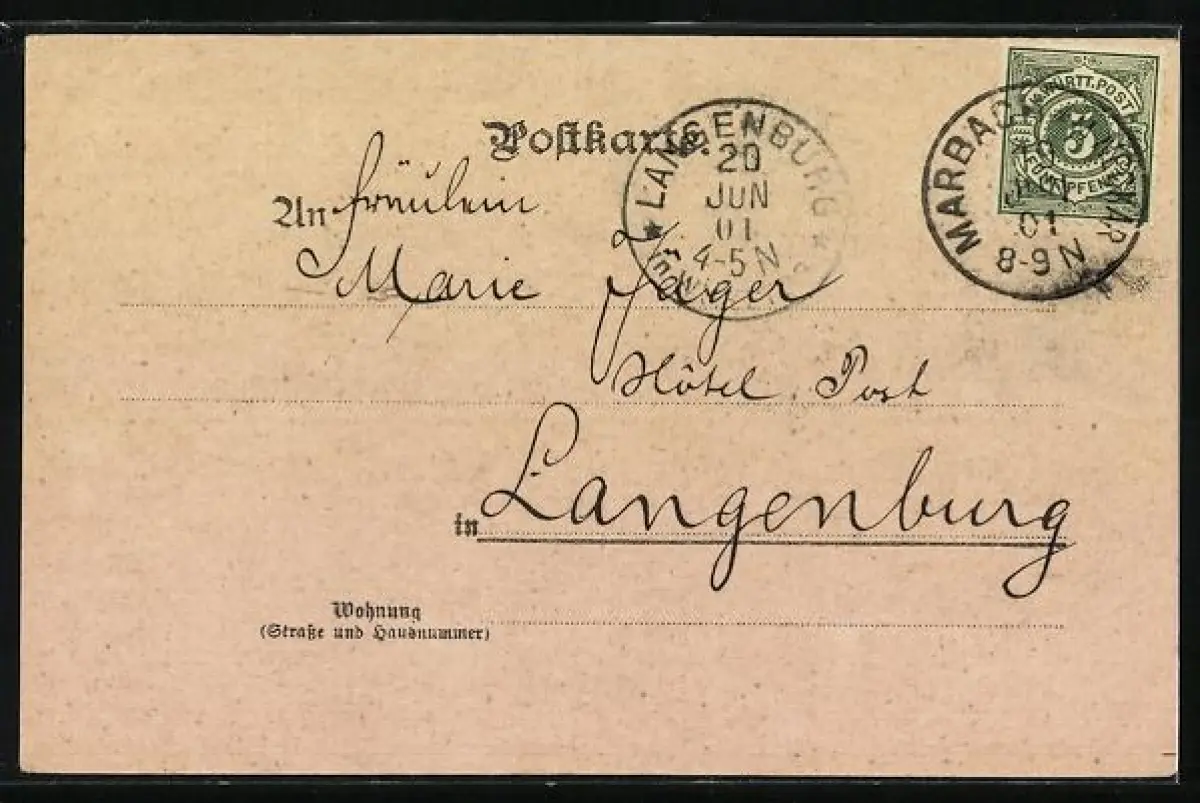 Postkarte.
An Fräulein
Marie Jäger
Hôtel Post
in Langenburg
Wohnung
(Straße und Hausnummer)
LANGENBURG
20
JUN
01
4-5 N
K. WÜRTT. POST
5
FÜNF PFENNIG
MARBACH
JUN
01
8-9 N